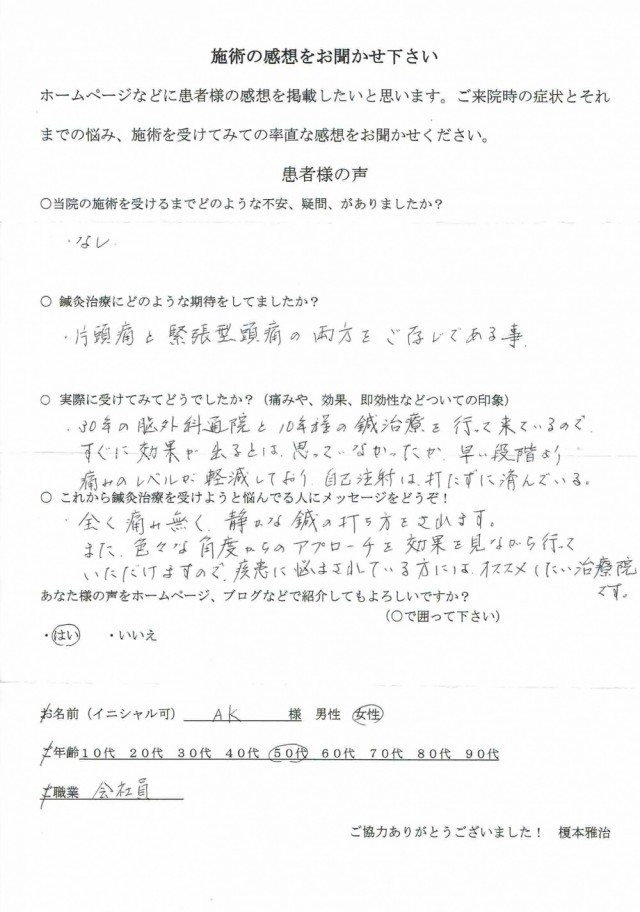 施術の感想をお聞かせ下さい
ホームページなどに患者様の感想を掲載したいと思います。ご来院時の症状とそれ
までの悩み、施術を受けてみての率直な感想をお聞かせください。
患者様の声
○当院の施術を受けるまでどのような不安、疑問、がありましたか？
・なし.
○ 鍼灸治療にどのような期待をしてましたか？
・片頭痛と緊張型頭痛の両方をご存じである事.
○ 実際に受けてみてどうでしたか？（痛みや、効果、即効性などついての印象）
・30年の脳外科通院と10年程の鍼治療を行って来ているので、
すぐに効果が出るとは、思っていなかったが、早い段階より
痛みのレベルが軽減しており、自己注射は、打たずに済んでいる。
○ これから鍼灸治療を受けようと悩んでる人にメッセージをどうぞ！
・全く痛み無く、静かな鍼の打ち方をされます。
また、色々な角度からのアプローチを効果を見ながら行って
いただけますので、疾患に悩まされている方には、オススメしたい治療院
です。
あなた様の声をホームページ、ブログなどで紹介してもよろしいですか？
（○で囲って下さい）
・はい ・いいえ
お名前（イニシャル可） AK 様 男性 女性
ご年齢 10代 20代 30代 40代 50代 60代 70代 80代 90代
ご職業 会社員
ご協力ありがとうございました！ 榎本雅治